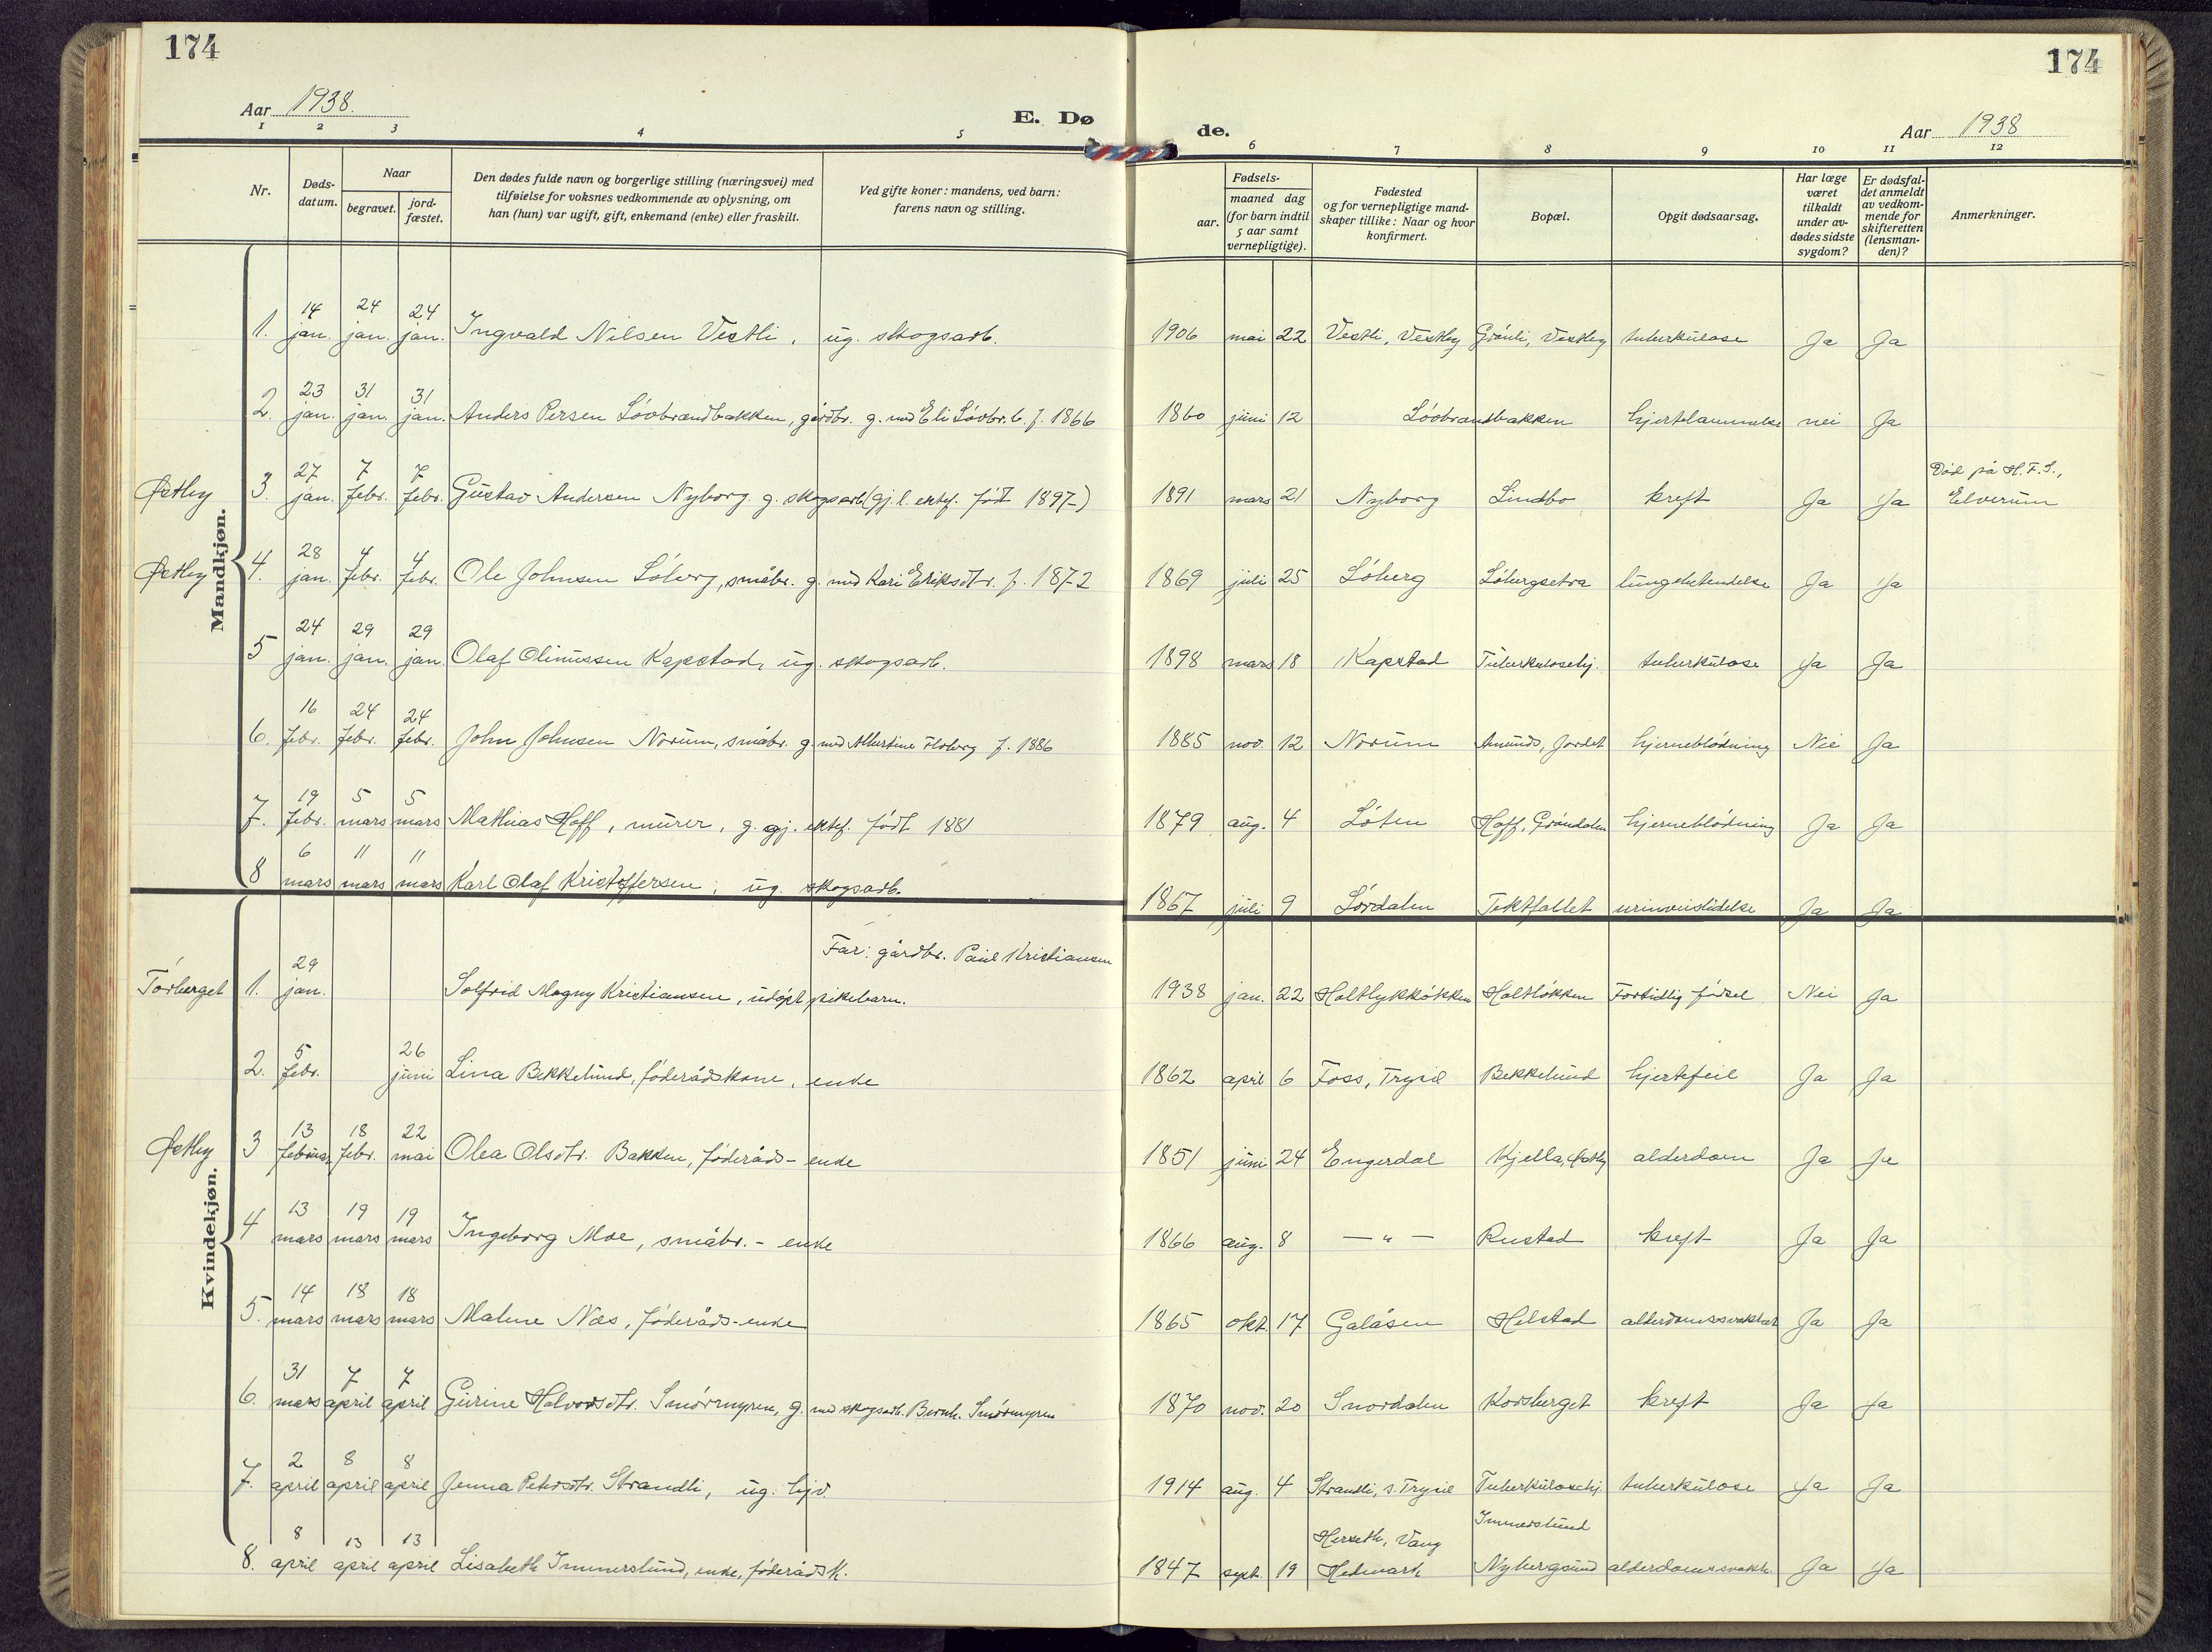 174
174
Aar 1938.
E. Dø
de.
Aar 1938
1 2 3 4 5 6 7 8 9 10 11 12
Nr.
Døds-
datum.
Naar
begravet.
jord-
fæstet.
Den dødes fulde navn og borgerlige stilling (næringsvei) med
tilføielse for voksnes vedkommende av oplysning, om
han (hun) var ugift, gift, enkemand (enke) eller fraskilt.
Ved gifte koner: mandens, ved barn:
farens navn og stilling.
Fødsels-
aar.
maaned dag
(for barn indtil
5 aar samt
vernepligtige).
Fødested
og for vernepligtige mand-
skaper tillike: Naar og hvor
konfirmert.
Bopæl.
Opgit dødsaarsag.
Har læge
været
tilkaldt
under av-
dødes sidste
sygdom?
Er dødsfal-
det anmeldt
av vedkom-
mende for
skifteretten
(lensman-
den)?
Anmerkninger.
Mandkjøn.
1. 14 jan. 24 jan. 24 jan. Ingvald Nilsen Vestli, ug. skogsarb. 1906 mai 22 Vestli, Vestby Grönli, Vestby tuberkulose Ja Ja
2. 23 jan. 31 jan. 31 jan. Anders Persen Lövbrandbakken, gårdbr. g. med Eli Lövbr.b. f. 1866 1860 juni 12 Lövbrandbakken hjertelammelse nei Ja
Østby 3. 27 jan. 7 febr. 7 febr. Gustav Andersen Nyborg g. skogsarb. (gj.l. ektef. født 1897) 1891 mars 21 Nyborg Lindbo kreft Ja Ja Død på H.F.S., Elverum
Østby 4. 28 jan. 4 febr. 4 febr. Ole Johnsen Löberg, småbr. g. med Kari Eriksdtr. f. 1872 1869 juli 25 Löberg Löbergsetra lungebetendelse Ja Ja
5 24 jan. 29 jan. 29 jan Olaf Olinussen Kapstad, ug. skogsarb. 1898 mars 18 Kapstad Tuberkulosehj. tuberkulose Ja Ja
6. 16 febr. 24 febr. 24 febr. John Johnsen Norum, småbr. g. med Albertine Floberg f. 1886 1885 nov. 12 Norum Amunds, Jordet hjerneblödning Nei Ja
7. 19 febr. 5 mars 5 mars Mathias Hoff, murer, g. gj. ektef. født 1881 1879 aug. 4 Löten Hoff, Gröndalen hjerneblödning Ja Ja
8 6 mars 11 mars 11 mars Karl Olaf Kristoffersen, ug. skogsarb. 1867 juli 9 Lördalen Tektfallet urinveislidelse Ja Ja
Kvindekjøn.
Far: gårdbr. Paul Kristiansen
Törberget 1. 29 jan. Solfrid Magny Kristiansen, udöpt pikebarn. 1938 jan. 22 Holtlykkökken Holtlökken Fortidlig födsel Nei Ja
2. 5 febr. 26 juni Lina Bekkelund, föderådskone, enke 1862 april 6 Foss, Trysil Bekkelund hjertefeil Ja Ja
Østby 3 13 februar 18 febr. 22 mai Olea Olsdtr. Bakken, föderåds- enke 1851 juni 24 Engerdal Kjella, Østby alderdom Ja Ja
4 13 mars 19 mars 19 mars Ingeborg Moe, småbr. - enke 1866 aug. 8 — " — Rustad kreft Ja Ja
5. 14 mars 18 mars 18 mars Malene Næs, föderåds-enke 1865 okt. 17 Galåsen Helstad alderdomssvakhet Ja Ja
6. 31 mars 7 april 7 april Gurine Halvorsdtr. Smörmyren, g. med skogsarb. Bernh. Smörmyren 1870 nov. 20 Snordalen Korsberget kreft Ja Ja
7. 2 april 8 april 8 april Jenna Petersdtr. Strandli, ug. hjv. 1914 aug. 4 Strandli, s. Trysil Tuberkulosehj. tuberkulose Ja Ja
8. 8 april 13 april 13 april Lisabeth Immerslund, enke, föderådsk. 1847 sept. 19 Herseth, Vang Hedmark Immerslund Nybergsund alderdomssvakh. Ja Ja